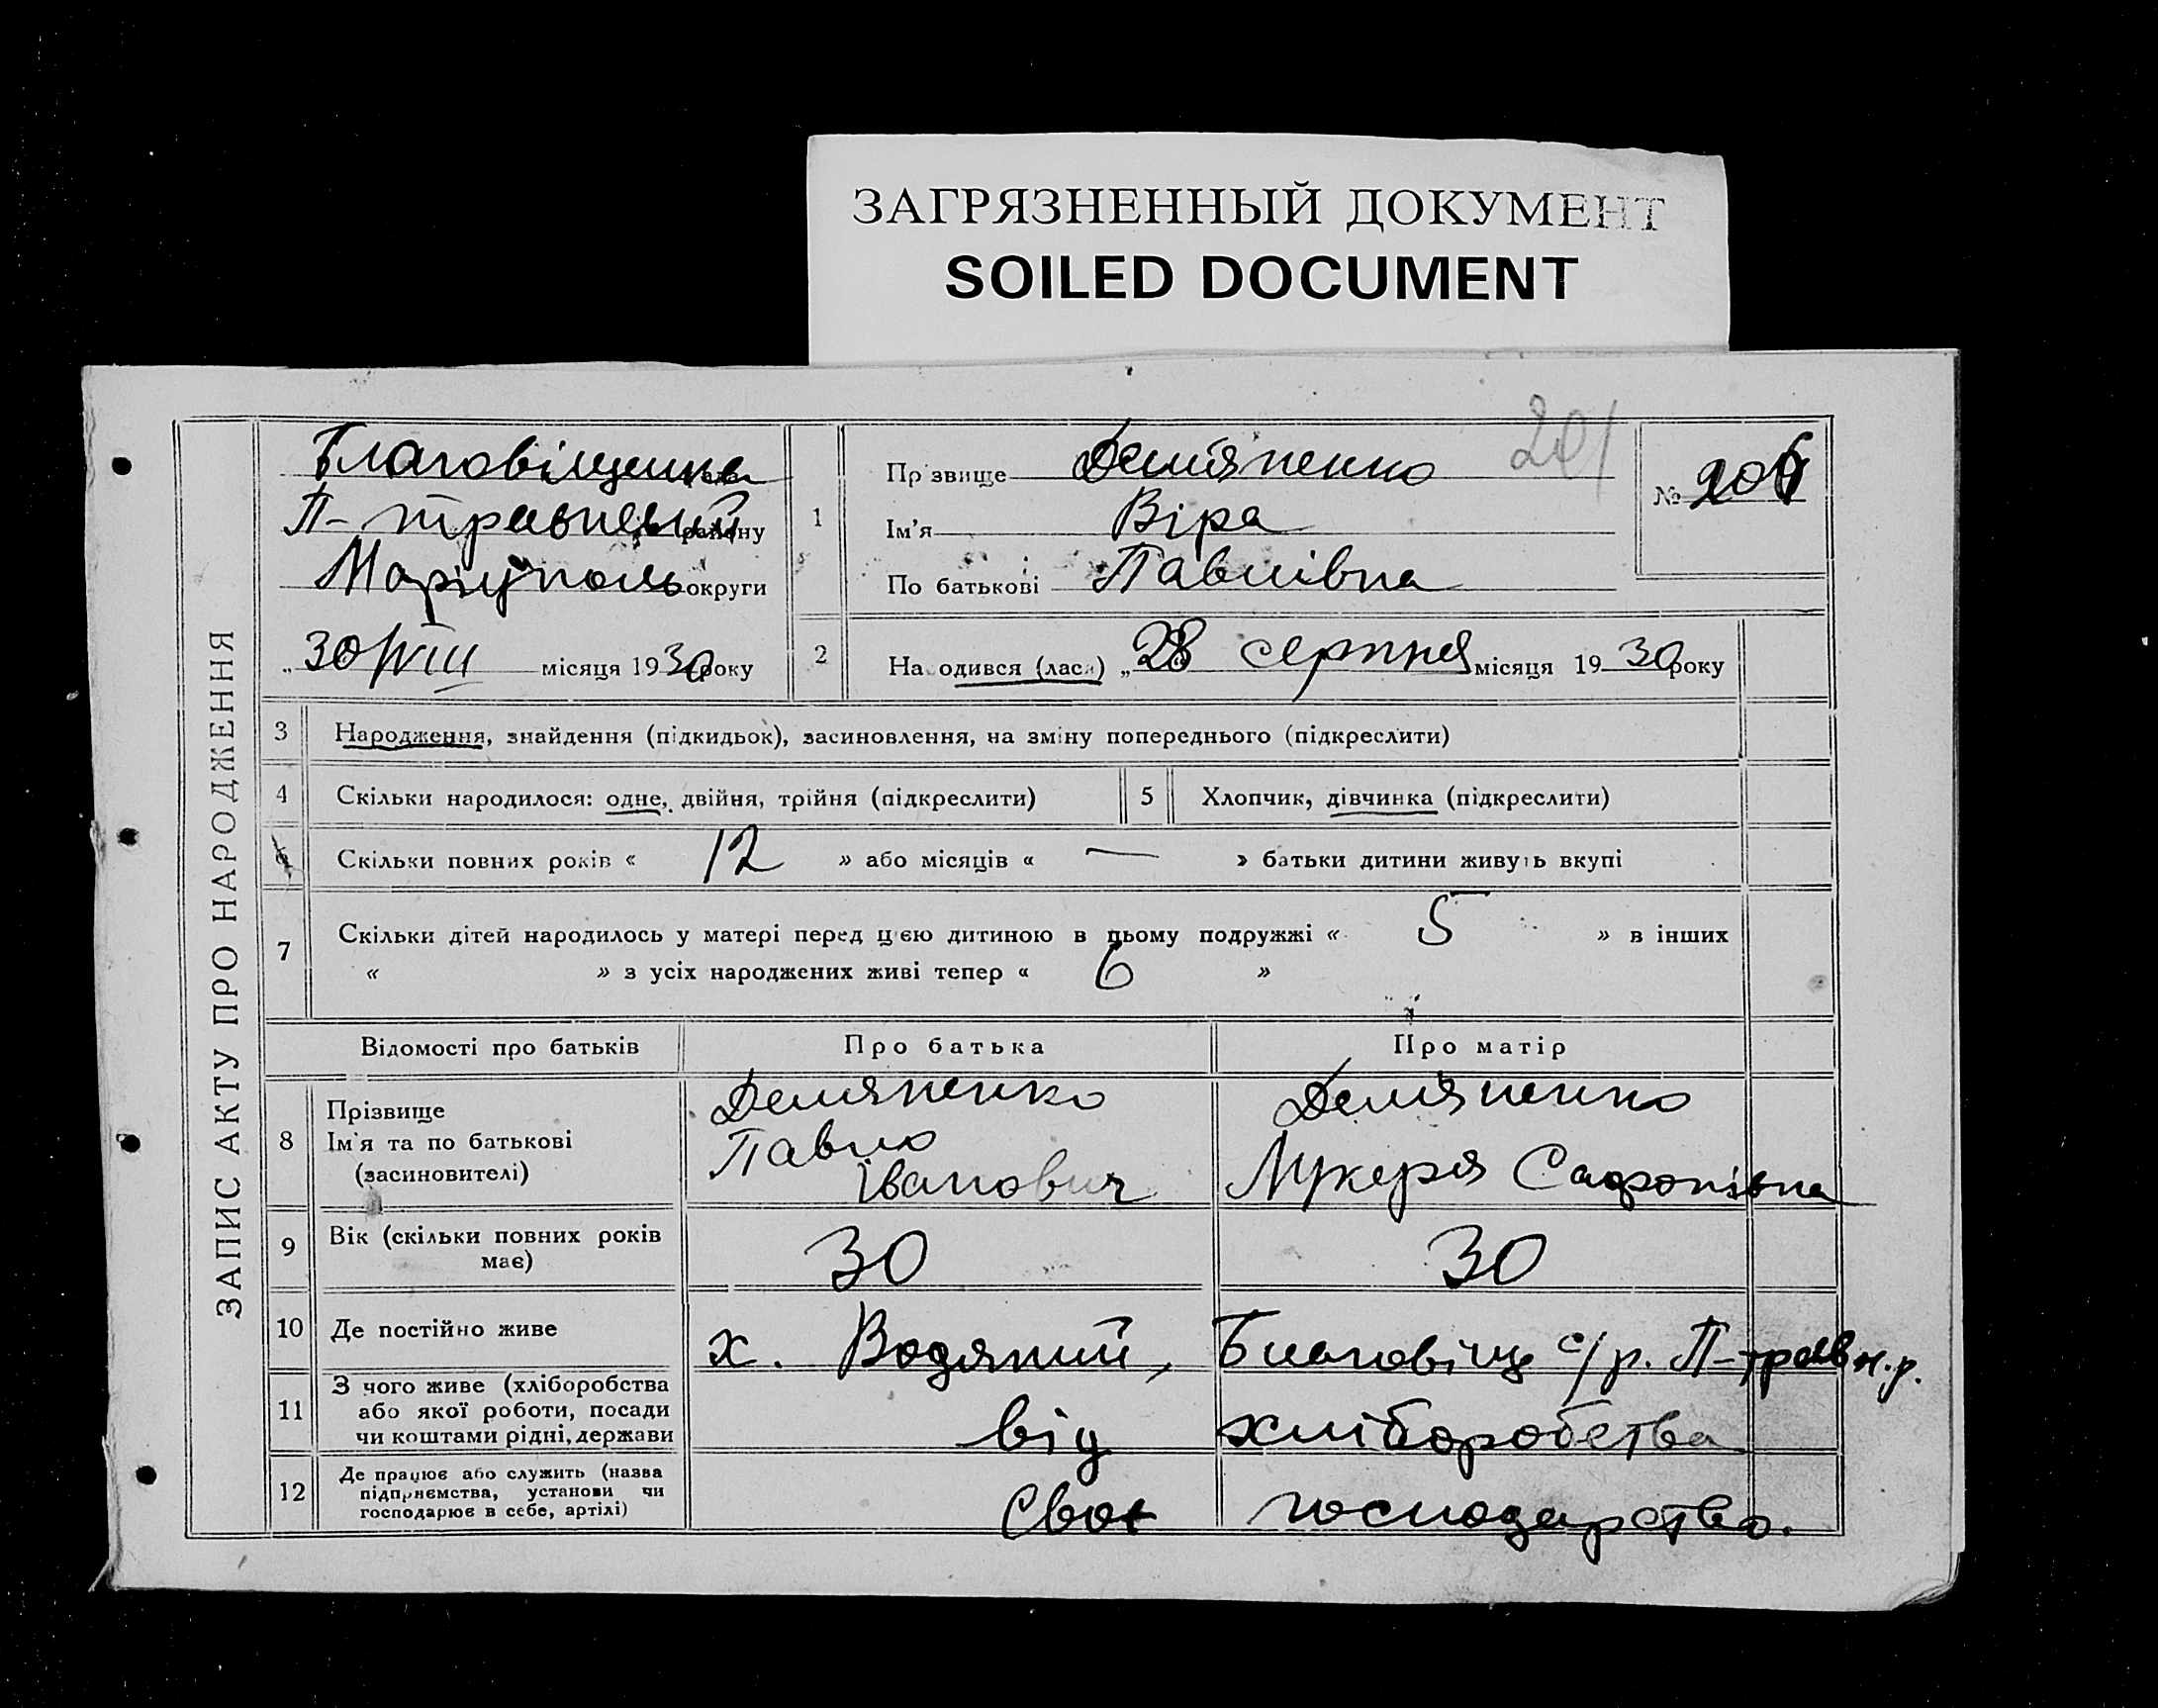 ЗАГРЯЗНЕННЫЙ ДОКУМЕНТ
SOILED DOCUMENT
ЗАПИС АКТУ ПРО НАРОДЖЕННЯ
Благовіщенка
П-травневий району
Маріуполь округи
„30/VIII місяця 1930 року
1
Пр звище Дем'яненко
201
Ім'я Віра
По батькові Павлівна
№
2
На одився (лася) „28 серпня місяця 1930 року
3 Народження, знайдення (підкидьок), засиновлення, на зміну попереднього (підкреслити)
4 Скільки народилося: одне, двійня, трійня (підкреслити) 5 Хлопчик, дівчинка (підкреслити)
6 Скільки повних років « 12 » або місяців « — » батьки дитини живуть вкупі
7 Скільки дітей народилось у матері перед цією дитиною в цьому подружжі « 5 » в інших
« » з усіх народжених живі тепер « 6 »
Відомості про батьків Про батька Про матір
8 Прізвище
Ім'я та по батькові
(засиновителі)
Демяненко
Павло
Іванович
Дем'яненко
Лукеря Сафонівна
9 Вік (скільки повних років
має)
30 30
10 Де постійно живе х. Водяний, Благовіщ с/р. П-травн.р.
11 З чого живе (хліборобства
або якої роботи, посади
чи коштами рідні, держави
від хліборобства
12 Де працює або служить (назва
підприємства, установи чи
господарює в себе, артілі)
Своє господарство.